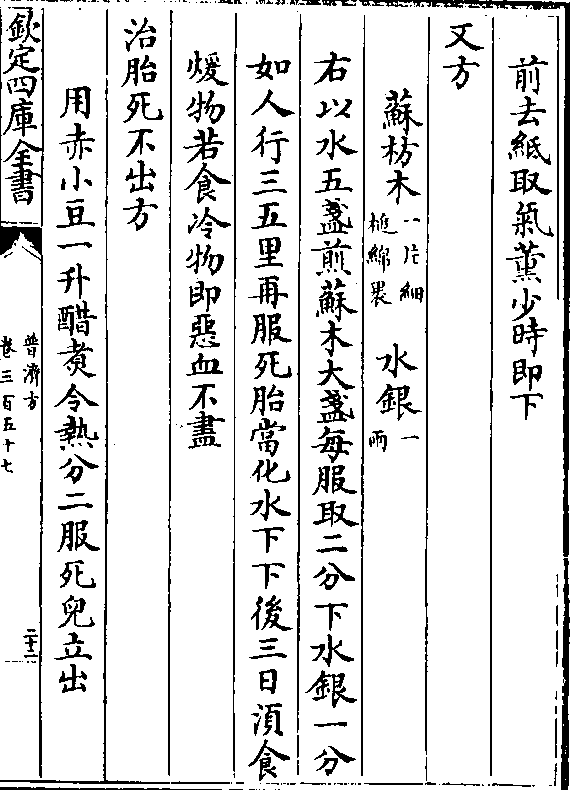 前去紙取氣薰少時即下
又方
蘇枋木一片細槌綿褁 水銀一兩
右以水五盞煎蘇木大盞每服取二分下水銀一分
如人行三五里再服死胎當化水下下後三日須食
煖物若食冷物即惡血不盡
治胎死不出方
用赤小豆一升醋煮令熟分二服死兒立出
欽定四庫全書
普濟方
卷三百五十七
二十二